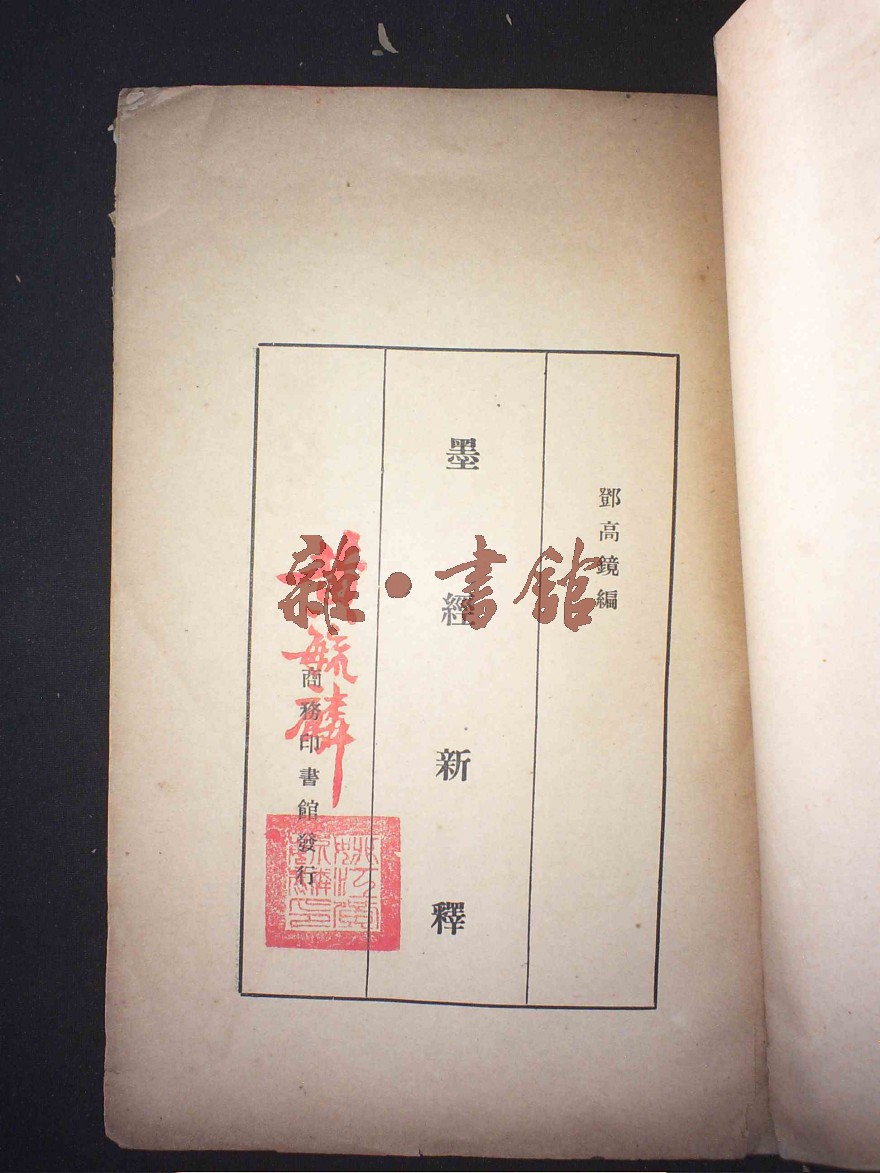 鄧高鏡編
墨經新釋
商務印書館發行
毓麟
雜·書館